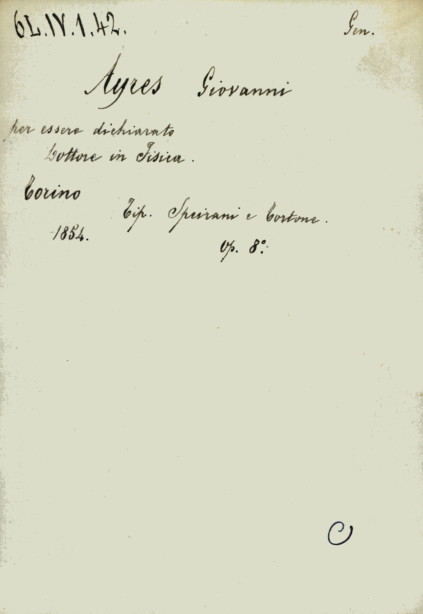 6L.IV.1.42.
Gen.
Ayres Giovanni
per essere dichiarato
Dottore in Fisica.
Torino
Tip. Speirani e Tortone.
1854.
Op. 8º.
C